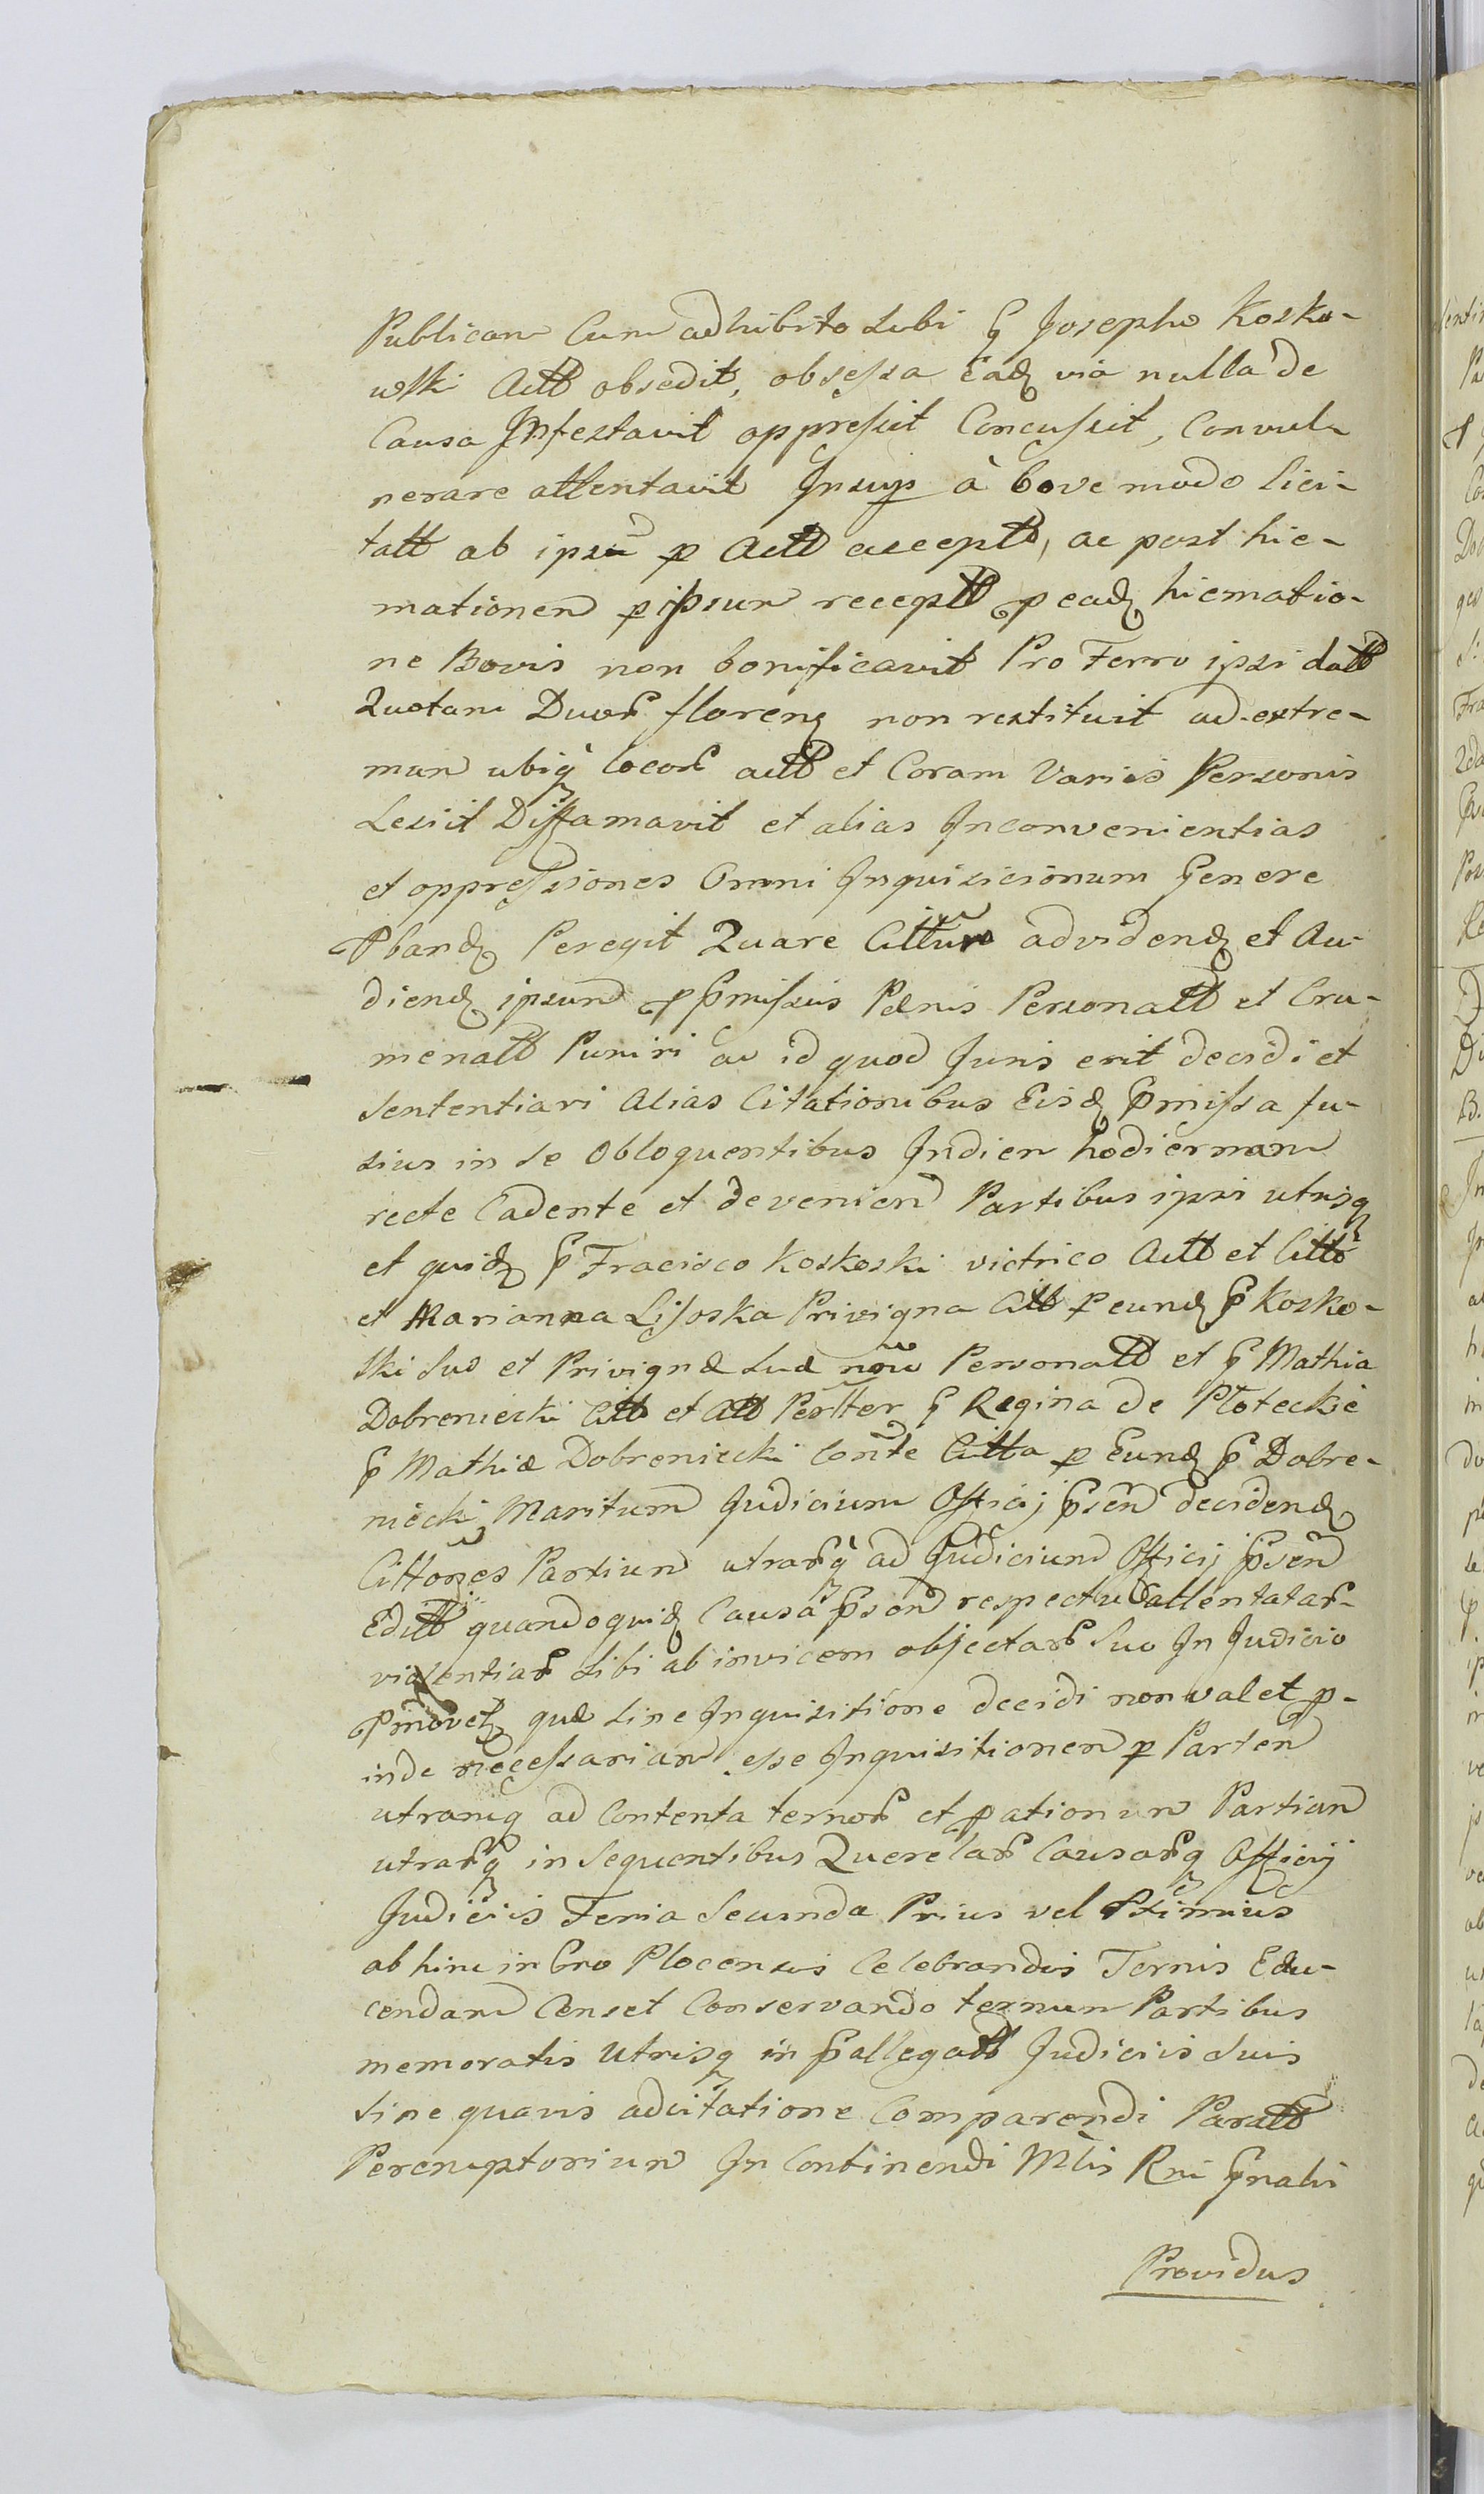 Publicam Cum adhibito Subi G Josepho Kosko-
wski Actt obsedit, obsessa eadq via nulla de
Causa Infestavit oppressit Concussit, Convul-
nerare attentavit Insup à bove modo lici-
tatt ab ipsu p Actt acceptt, ac post hie-
mationem p ipsum receptt p eadq hiematio-
ne Bovis non bonificavit Pro Ferro ipsi datt
Quotam Duor florenq non restituit ad extre-
mum ubiq locor actt et Coram Variis Personis
Lesiit Diffamavit et alias Inconvenientias
et oppressiones Omni Inquisicionum Genere
Pbandq Peregit Quare Cittur advidendq et Au-
diendq ipsum p Pmissis Pænis Personatt et Cru-
menatt Puniri ac id quod Juris erit decidi et
Sententiari Alias Citationibus Eisdq Pmissa fu-
sius in se Obloquentibus In diem hodiernam
recte Cadente et devenien Partibus ipsi utrisq
et quidq G Fracisco Koskoski victrico Actt et Citto
et Marianna Lisoska Privigna Citt p eundq G Kosko-
ski suo et Privignæ suæ noie Personatt et G Mathia
Dobreniecki Citt et Att Persltter G Regina de Płoteckie
G Mathiæ Dobreniecki Conte Citta p Eundq G Dobre-
niecki Maritum Judicium Officij Psen decidendq
Cittones Partium utrarq ad Judicium Officij Psen
Editt quandoquidq Causa Pson respectu attentatar
violentiar sibi ab invicem objectar suo In Judicio
Pmovetq quæ sine Inquisitione decidi non valet p-
inde necessariam esse Inquisitionem p Partem
utramq ad Contenta ternor et pationum Partium
utrarq in Sequentibus Querelar Causarq Officij
Judiciis Feria Secunda Prius vel Pximius
ab hinc in Cro Plocensis Celebrandis Ternis Edu-
cendam Censet Conservando ternum Partibus
memoratis Utrisq in Pallegatt Judiciis suis
sine quavis adcitatione Comparendi Paratt
Peremptorium In Continendi Mtis Rni Gnalis
Providus